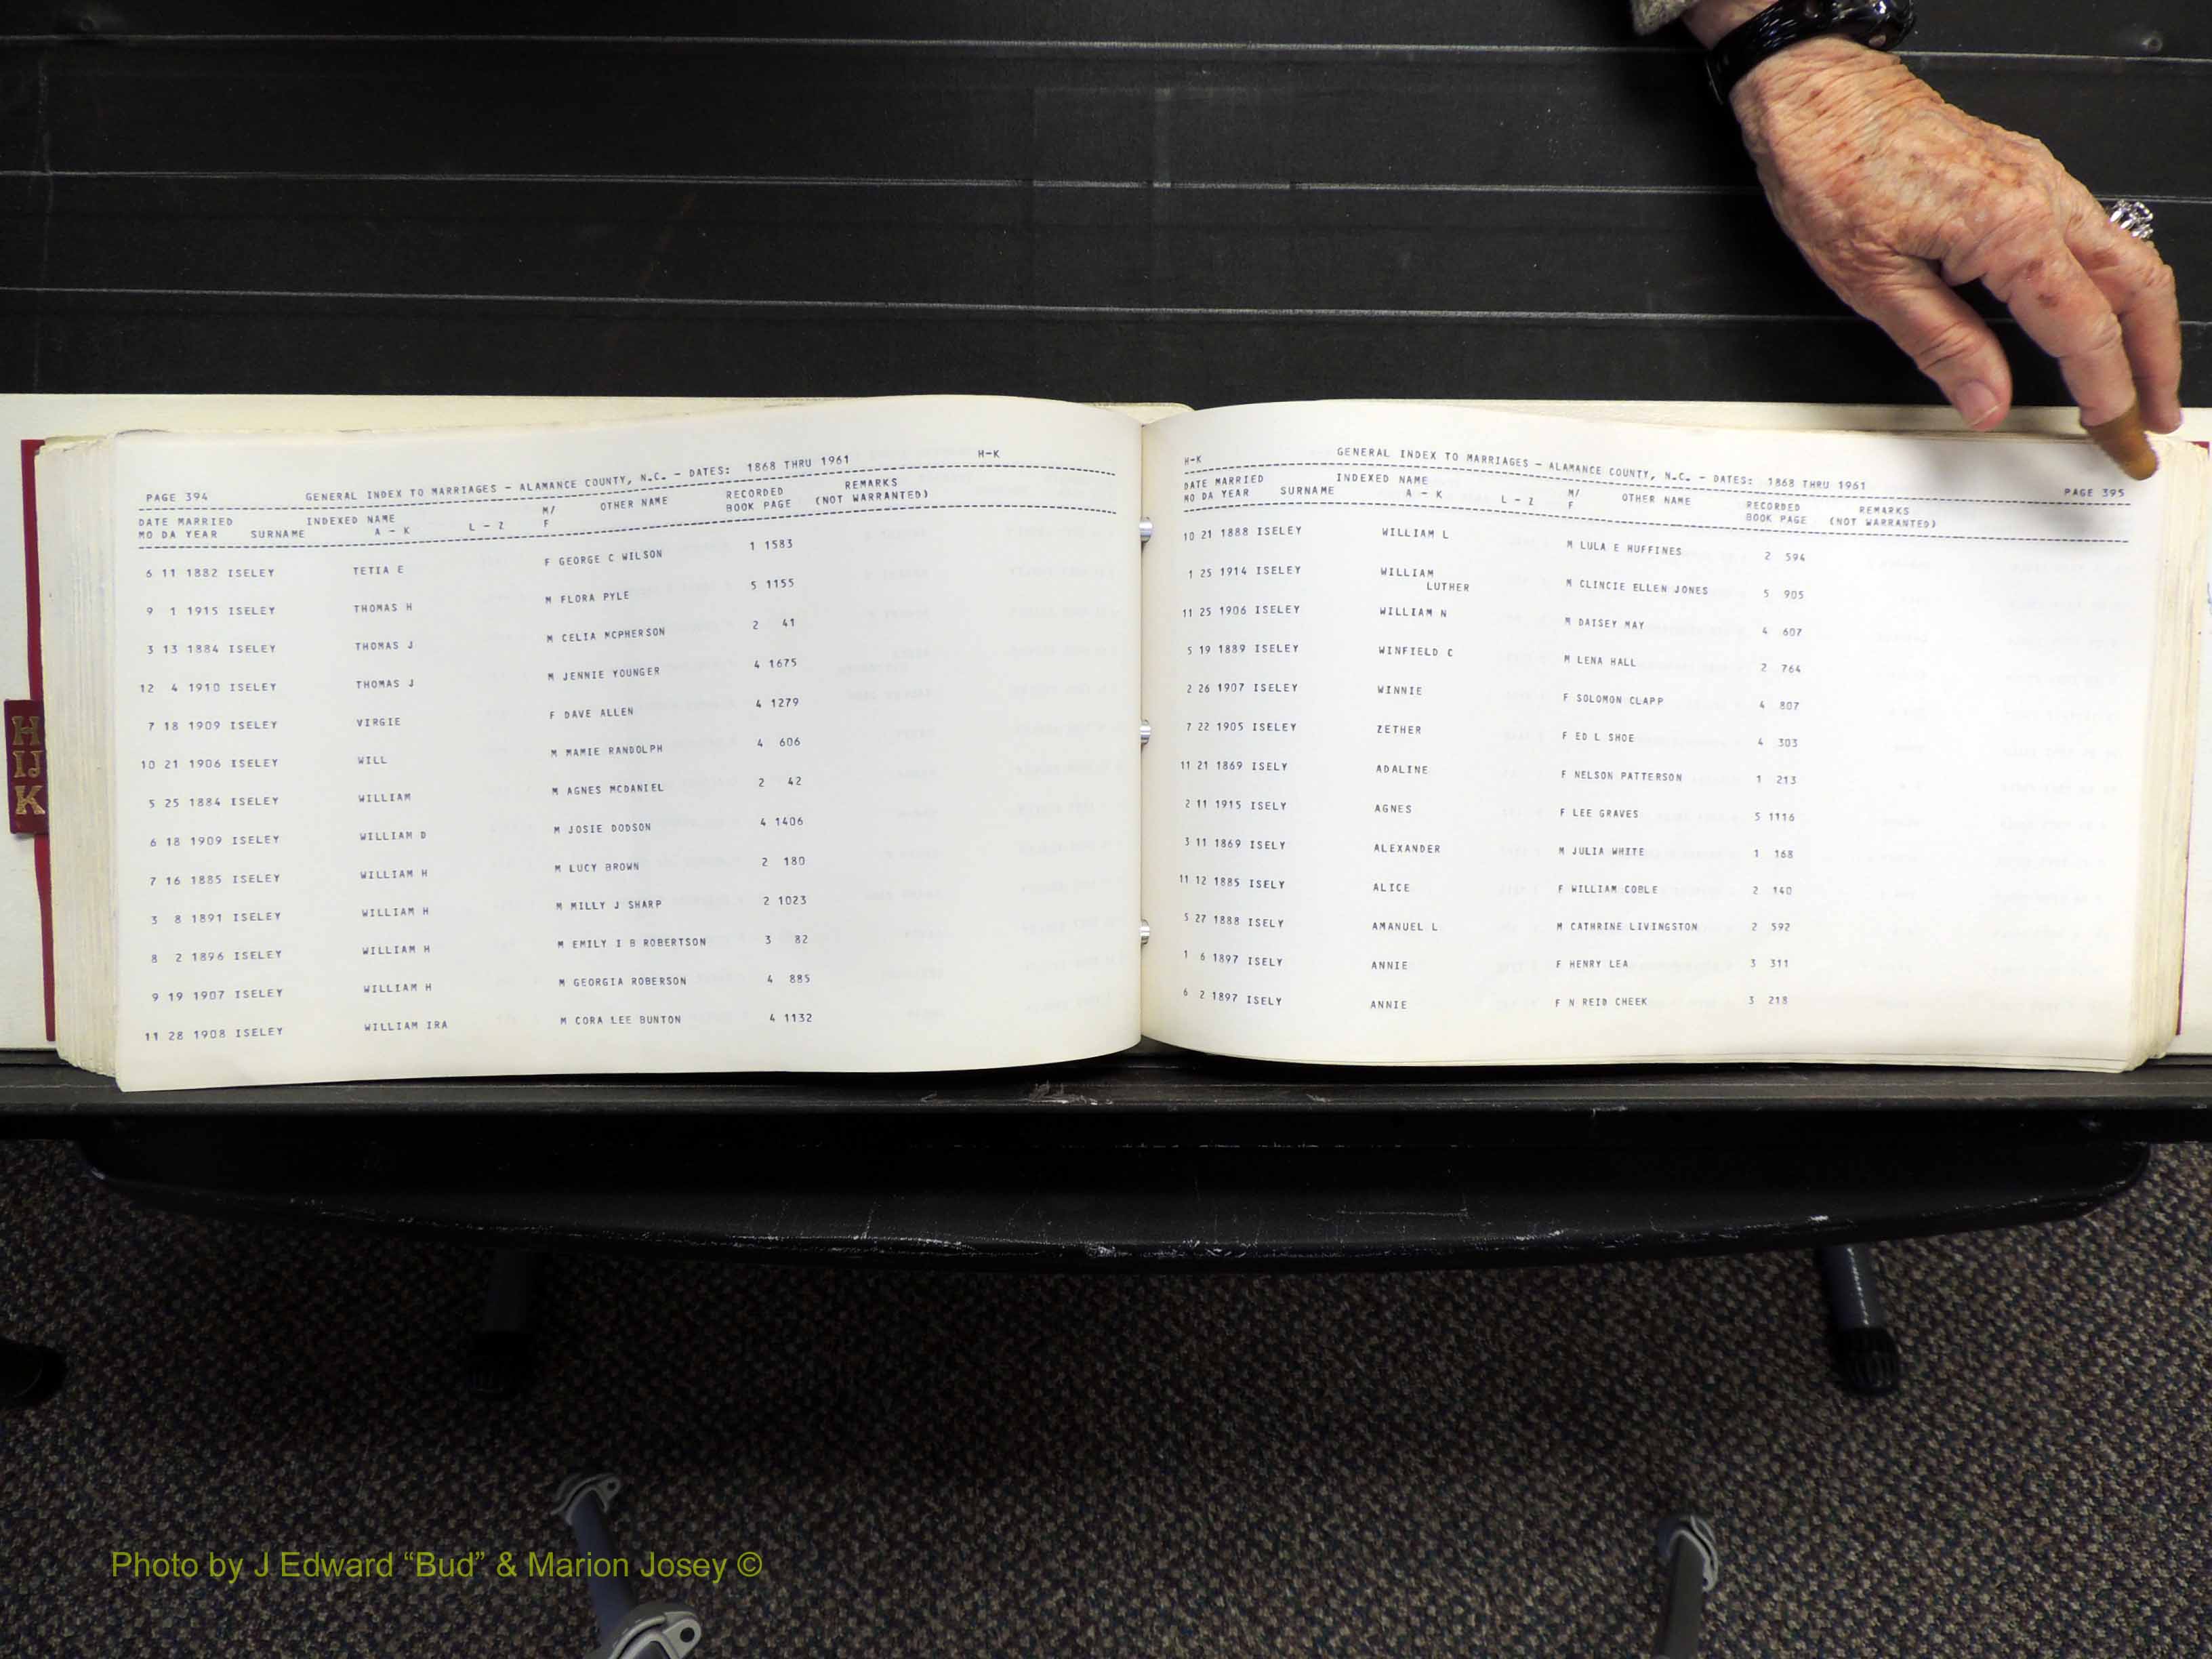 H
IJ
K
PAGE 394 GENERAL INDEX TO MARRIAGES - ALAMANCE COUNTY, N.C. - DATES: 1868 THRU 1961 H-K
DATE MARRIED INDEXED NAME M/ OTHER NAME RECORDED REMARKS
MO DA YEAR SURNAME A - K L - Z F BOOK PAGE (NOT WARRANTED)
6 11 1882 ISELEY TETIA E F GEORGE C WILSON 1 1583
9 1 1915 ISELEY THOMAS H M FLORA PYLE 5 1155
3 13 1884 ISELEY THOMAS J M CELIA MCPHERSON 2 41
12 4 1910 ISELEY THOMAS J M JENNIE YOUNGER 4 1675
7 18 1909 ISELEY VIRGIE F DAVE ALLEN 4 1279
10 21 1906 ISELEY WILL M MAMIE RANDOLPH 4 606
5 25 1884 ISELEY WILLIAM M AGNES MCDANIEL 2 42
6 18 1909 ISELEY WILLIAM D M JOSIE DODSON 4 1406
7 16 1885 ISELEY WILLIAM H M LUCY BROWN 2 180
3 8 1891 ISELEY WILLIAM H M MILLY J SHARP 2 1023
8 2 1896 ISELEY WILLIAM H M EMILY I B ROBERTSON 3 82
9 19 1907 ISELEY WILLIAM H M GEORGIA ROBERSON 4 885
11 28 1908 ISELEY WILLIAM IRA M CORA LEE BUNTON 4 1132
H-K GENERAL INDEX TO MARRIAGES - ALAMANCE COUNTY, N.C. - DATES: 1868 THRU 1961 PAGE 395
DATE MARRIED INDEXED NAME M/ OTHER NAME RECORDED REMARKS
MO DA YEAR SURNAME A - K L - Z F BOOK PAGE (NOT WARRANTED)
10 21 1888 ISELEY WILLIAM L M LULA E HUFFINES 2 594
1 25 1914 ISELEY WILLIAM M CLINCIE ELLEN JONES 5 905
LUTHER
11 25 1906 ISELEY WILLIAM N M DAISEY MAY 4 607
5 19 1889 ISELEY WINFIELD C M LENA HALL 2 764
2 26 1907 ISELEY WINNIE F SOLOMON CLAPP 4 807
7 22 1905 ISELEY ZETHER F ED L SHOE 4 303
11 21 1869 ISELY ADALINE F NELSON PATTERSON 1 213
2 11 1915 ISELY AGNES F LEE GRAVES 5 1116
3 11 1869 ISELY ALEXANDER M JULIA WHITE 1 168
11 12 1885 ISELY ALICE F WILLIAM COBLE 2 140
5 27 1888 ISELY AMANUEL L M CATHRINE LIVINGSTON 2 592
1 6 1897 ISELY ANNIE F HENRY LEA 3 311
6 2 1897 ISELY ANNIE F N REID CHEEK 3 218
Photo by J Edward “Bud” & Marion Josey ©